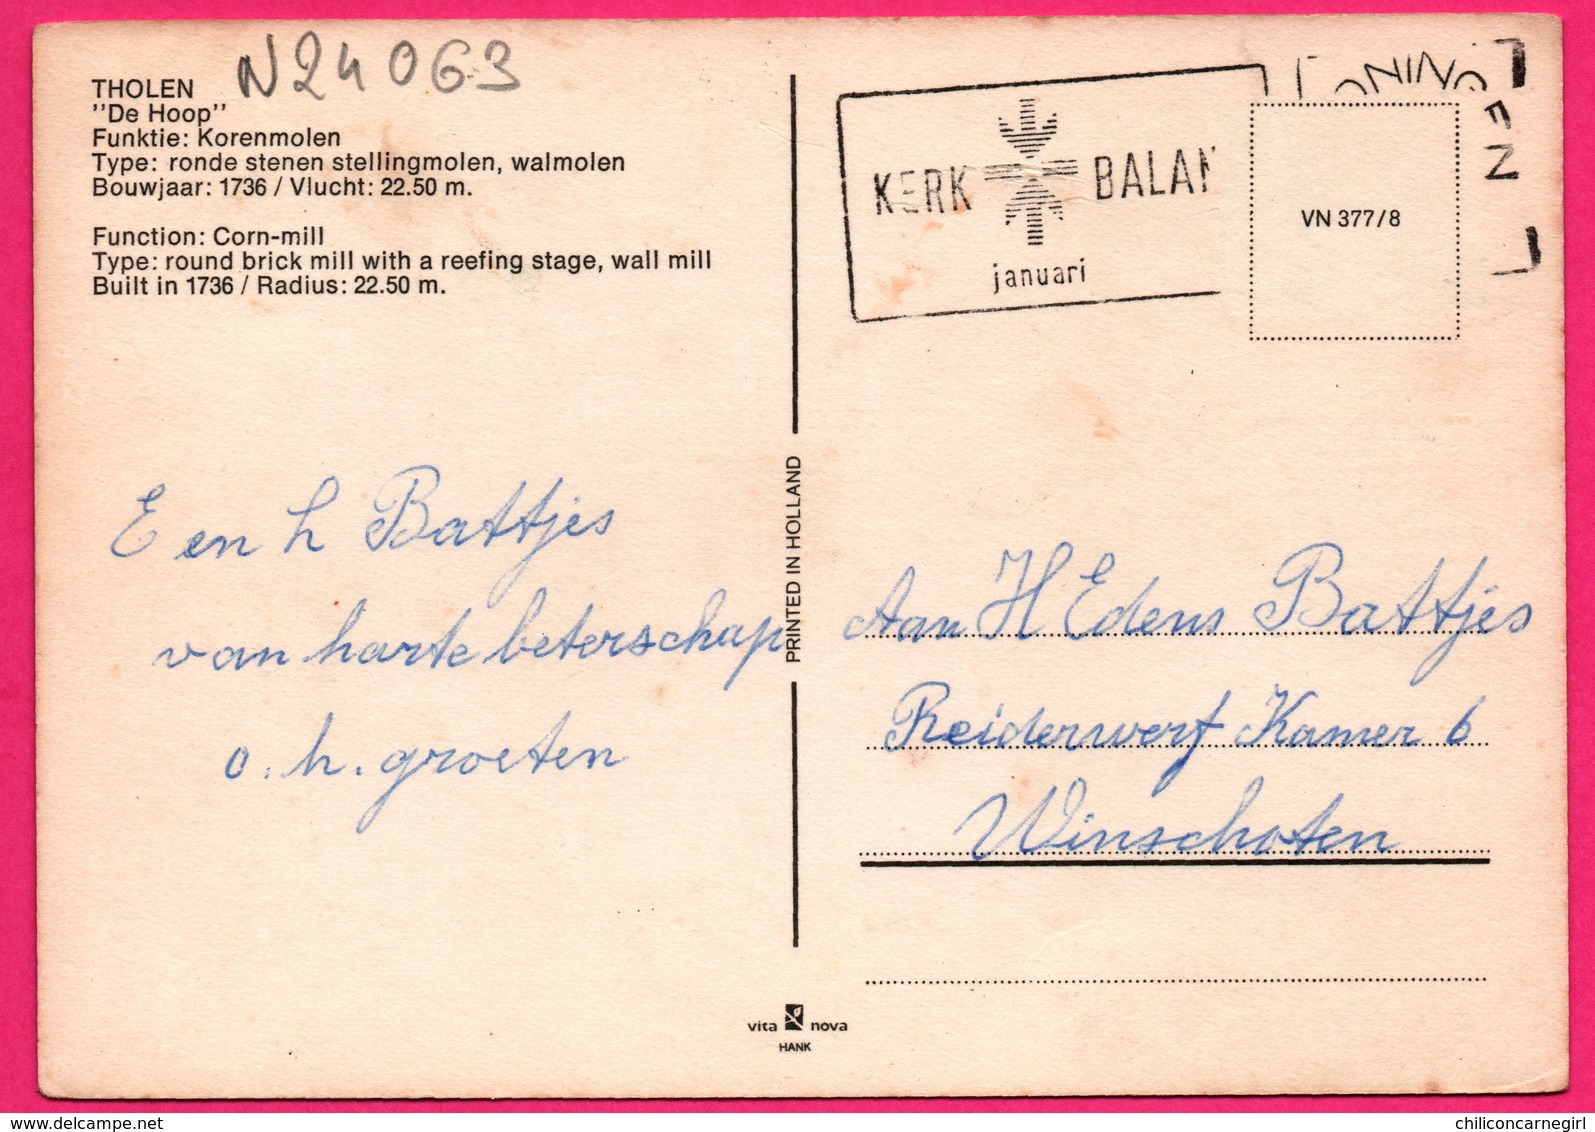 N24063
THOLEN
"De Hoop"
Funktie: Korenmolen
Type: ronde stenen stellingmolen, walmolen
Bouwjaar: 1736 / Vlucht: 22.50 m.
Function: Corn-mill
Type: round brick mill with a reefing stage, wall mill
Built in 1736 / Radius: 22.50 m.
E en h Battjes
van harte beterschap
o. h. groeten
PRINTED IN HOLLAND
vita nova
HANK
KERK BALAN
januari
ONINGEN
VN 377/8
Aan H Edens Battjes
Reiderwerf Kamer 6
Winschoten
www.delcampe.net
chiliconcarnegirl